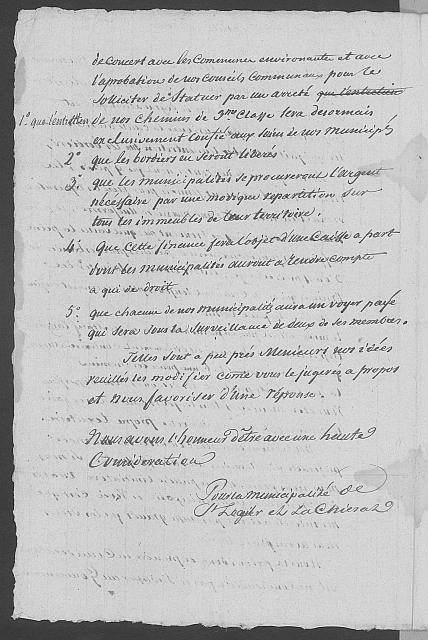 de concert avec les Communes environante et avec
l'aprobation de nos Conseils Communaux pour le
Solliciter de Statuer par un arreté que l'entretien
1º que l'entretien de nos chemins de 3me Classe sera desormais
exclusivement Confié aux Soins de nos municip.s
2º que les bordiers en Seront libérés
3º que les municipalités se procureront l'argent
nécessaire par une modique repartition sur
tous les immeubles de leur territoire.
4º Que cette finance fera l'objet d'une Caisse a part
dont les municipalités auront a Rendre Compte
a qui de droit
5º que chacune de nos municipalités aura un voyer payé
qui sera sous la Surveillance de deux de ses membres.
Telles sont a peu près Messieurs nos idées
veuillez les modifier come vous le jugerés a propos
et nous favoriser d'une réponse.
Nous avons l'honneur d'être avec une haute
Consideration
Pour la municipalité de
St Legier et La Chiesaz